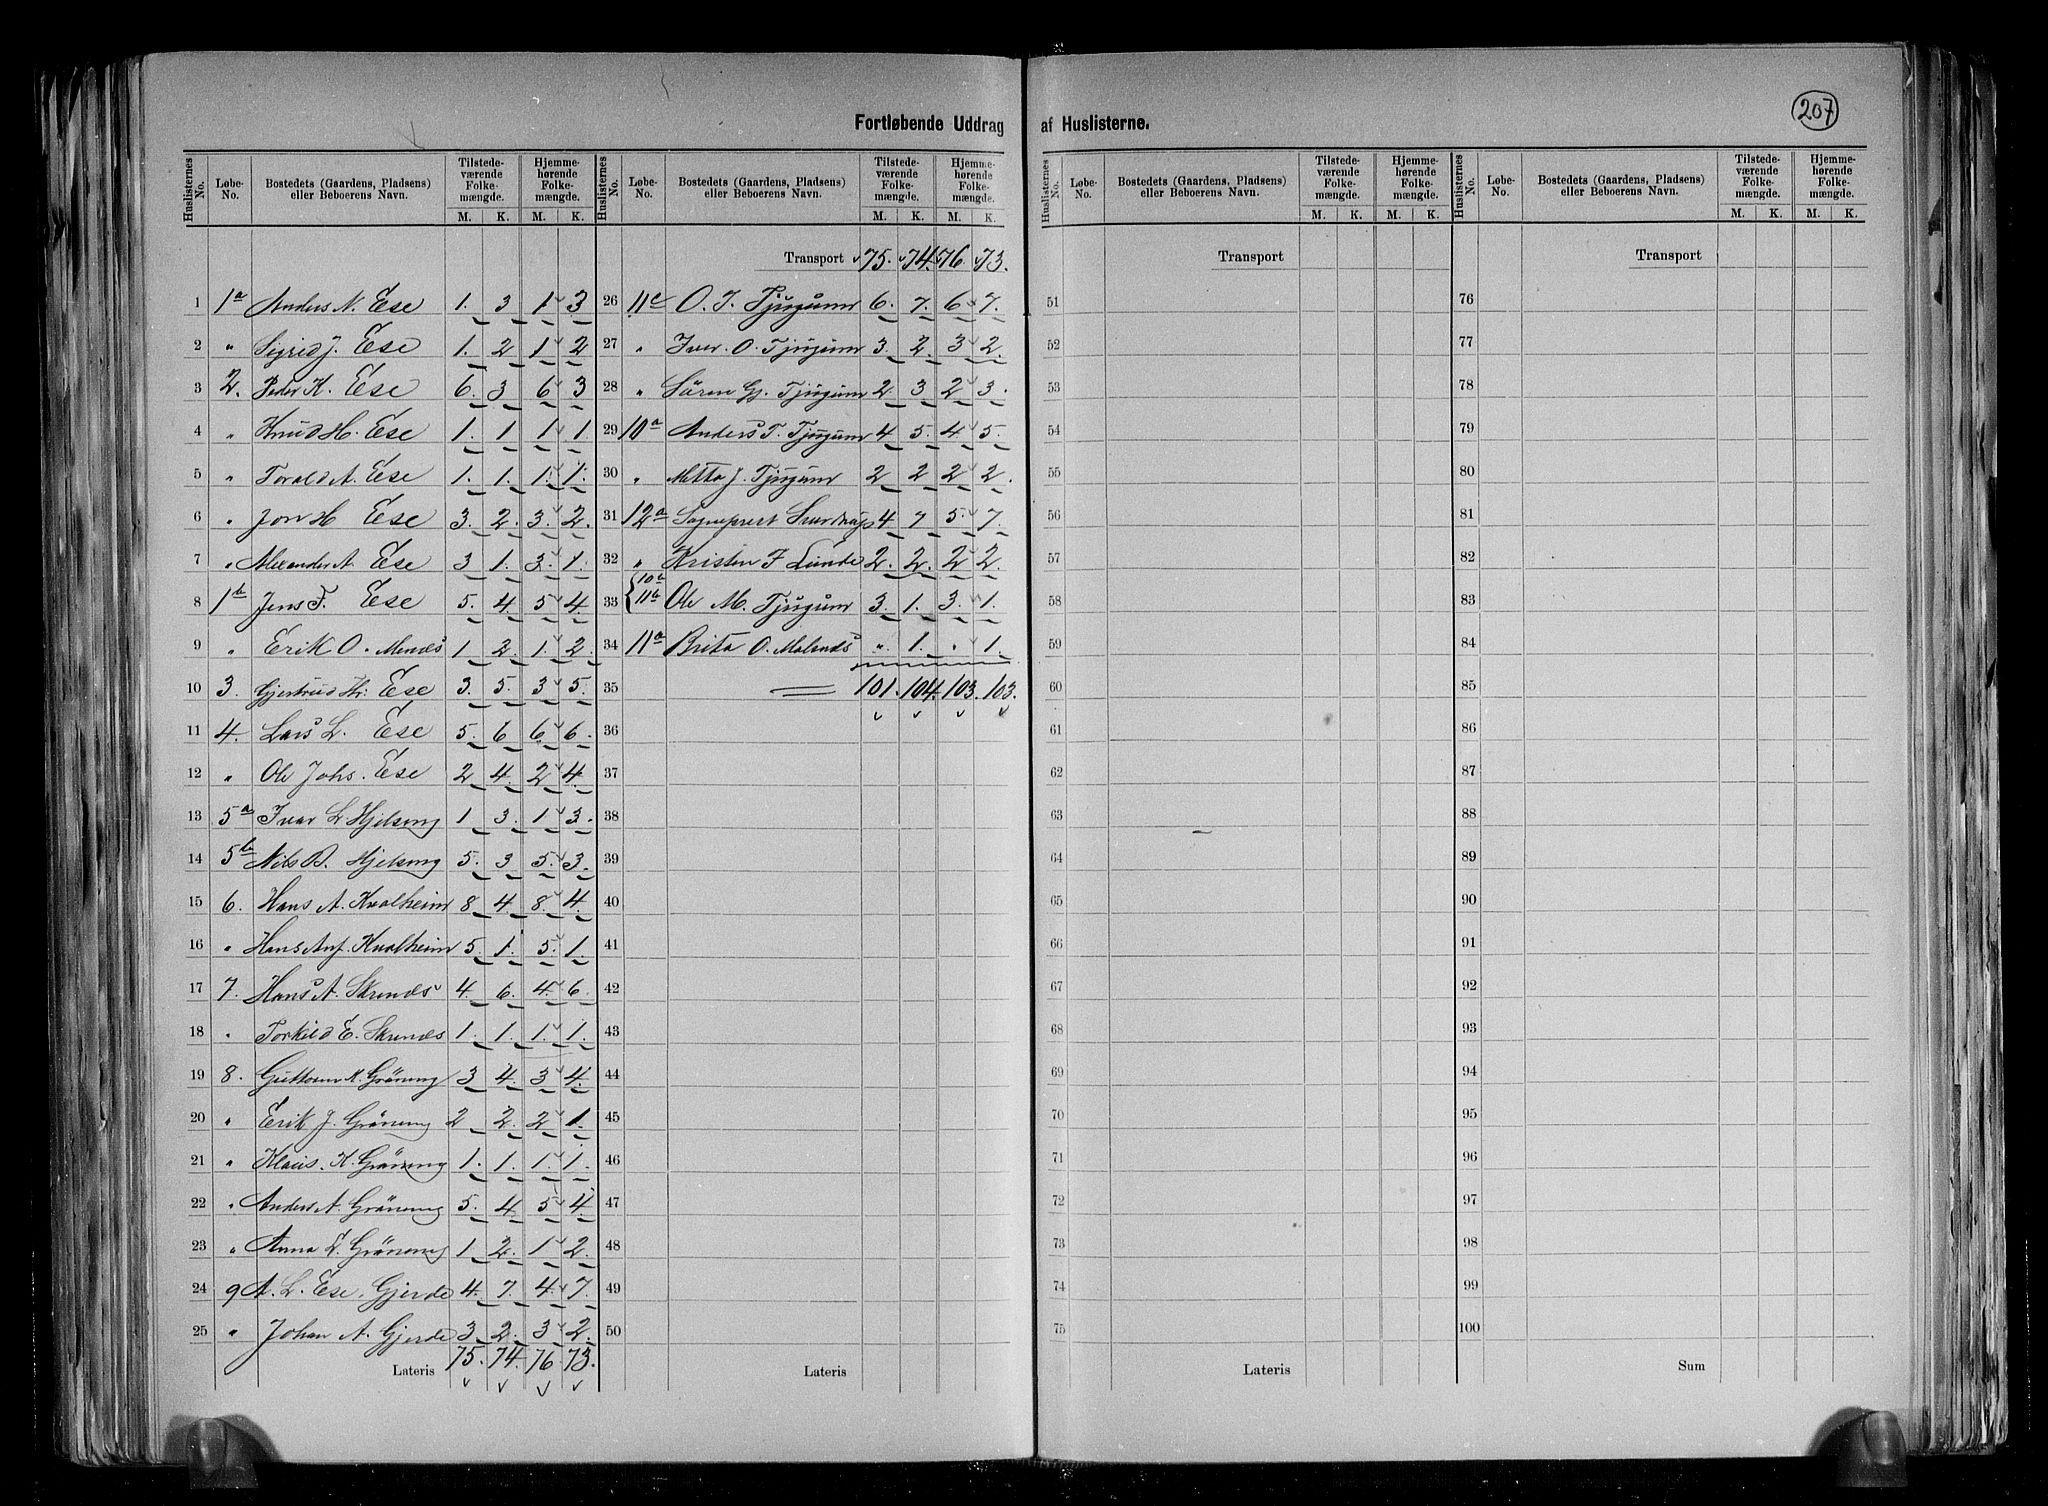 207
Fortløbende Uddrag af Huslisterne.
Huslisternes No. Løbe-No. Bostedets (Gaardens, Pladsens) eller Beboerens Navn. Tilstedeværende Folkemængde. M. K. Hjemmehørende Folkemængde. M. K.
1 1a Anders N. Ese 1. 3 1 3
2 " Sigrid J. Ese 1. 2 1 2
3 2. Peder K. Ese 6. 3 6 3
4 " Knud H. Ese 1. 1 1 1
5 " Torald A. Ese 1. 1. 1. 1.
6 " Jon H Ese 3. 2. 3. 2.
7 " Alexander A. Ese 3 1. 3. 1.
8 1b Jens F. Ese 5. 4. 5 4
9 " Erik O. Mendes 1 2. 1. 2.
10 3. Gjertrud Hr. Ese 3. 5. 3 5.
11 4. Lars L. Ese 5. 6 6 6.
12 " Ole Johs. Ese 2 4. 2 4.
13 5a Ivar L. Hjelseng 1 3. 1 3.
14 5b Nils B. Hjelseng 5. 3 5. 3.
15 6. Hans A. Kvalheim 8 4. 8. 4.
16 " Hans Anf. Kvalheim 5. 1. 5. 1.
17 7. Hans A. Skrendes 4. 6. 4. 6.
18 " Torkild E. Skrendes 1. 1. 1. 1.
19 8. Guttorm K. Gröneng 3 4. 3 4.
20 " Erik J. Gröneng 2 2. 2 1.
21 " Klaus. K. Gröneng 1. 1. 1. 1.
22 " Anders A. Gröneng 5. 4 5 4.
23 " Anna L. Gröneng 1 2. 1 2.
24 9 A. L. Ese, Gjerde 4. 7. 4. 7.
25 " Johan A. Gjerde 3 2. 3 2.
Lateris 75. 74. 76. 73.
Huslisternes No. Løbe-No. Bostedets (Gaardens, Pladsens) eller Beboerens Navn. Tilstedeværende Folkemængde. M. K. Hjemmehørende Folkemængde. M. K.
Transport 75. 74. 76 73.
26 11c O. J. Tjugum 6. 7. 6 7.
27 " Iver. O. Tjugum 3. 2. 3 2.
28 " Sören Gj. Tjugum 2 3 2 3.
29 10a Anders T. Tjugum 4 5. 4 5.
30 " Mette J. Tjugum 2 2 2 2.
31 12a Sogneprest 4 7 5. 7.
32 " Kristen F Lunde 2. 2. 2 2.
33 10b 11b Ole M. Tjugum 3. 1. 3. 1.
34 11a Brita O. Malends " 1. " 1.
35 101. 104. 103. 103.
36
37
38
39
40
41
42
43
44
45
46
47
48
49
50
Lateris
Huslisternes No. Løbe-No. Bostedets (Gaardens, Pladsens) eller Beboerens Navn. Tilstedeværende Folkemængde. M. K. Hjemmehørende Folkemængde. M. K.
Transport
51
52
53
54
55
56
57
58
59
60
61
62
63
64
65
66
67
68
69
70
71
72
73
74
75
Lateris
Huslisternes No. Løbe-No. Bostedets (Gaardens, Pladsens) eller Beboerens Navn. Tilstedeværende Folkemængde. M. K. Hjemmehørende Folkemængde. M. K.
Transport
76
77
78
79
80
81
82
83
84
85
86
87
88
89
90
91
92
93
94
95
96
97
98
99
100
Sum